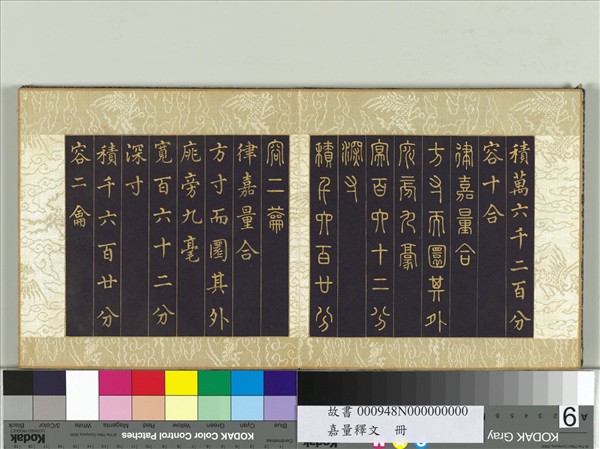 積萬六千二百分
容十合
律嘉量合
方寸而圜其外
庣旁九毫
冪百六十二分
深寸
積千六百廿分
容二龠
律嘉量合
方寸而圜其外
庣旁九毫
冪百六十二分
深寸
積千六百廿分
容二龠
故書 000948N000000000
嘉量釋文 冊
KODAK Color Control Patches
Blue Cyan Green Yellow Red Magenta White 3/Color Black
Kodak
KODAK Gray